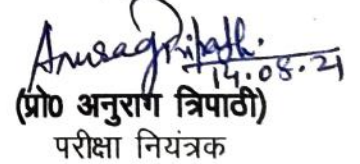 Anurag Tripathi.
14.08.21
(प्रो0 अनुराग त्रिपाठी)
परीक्षा नियंत्रक